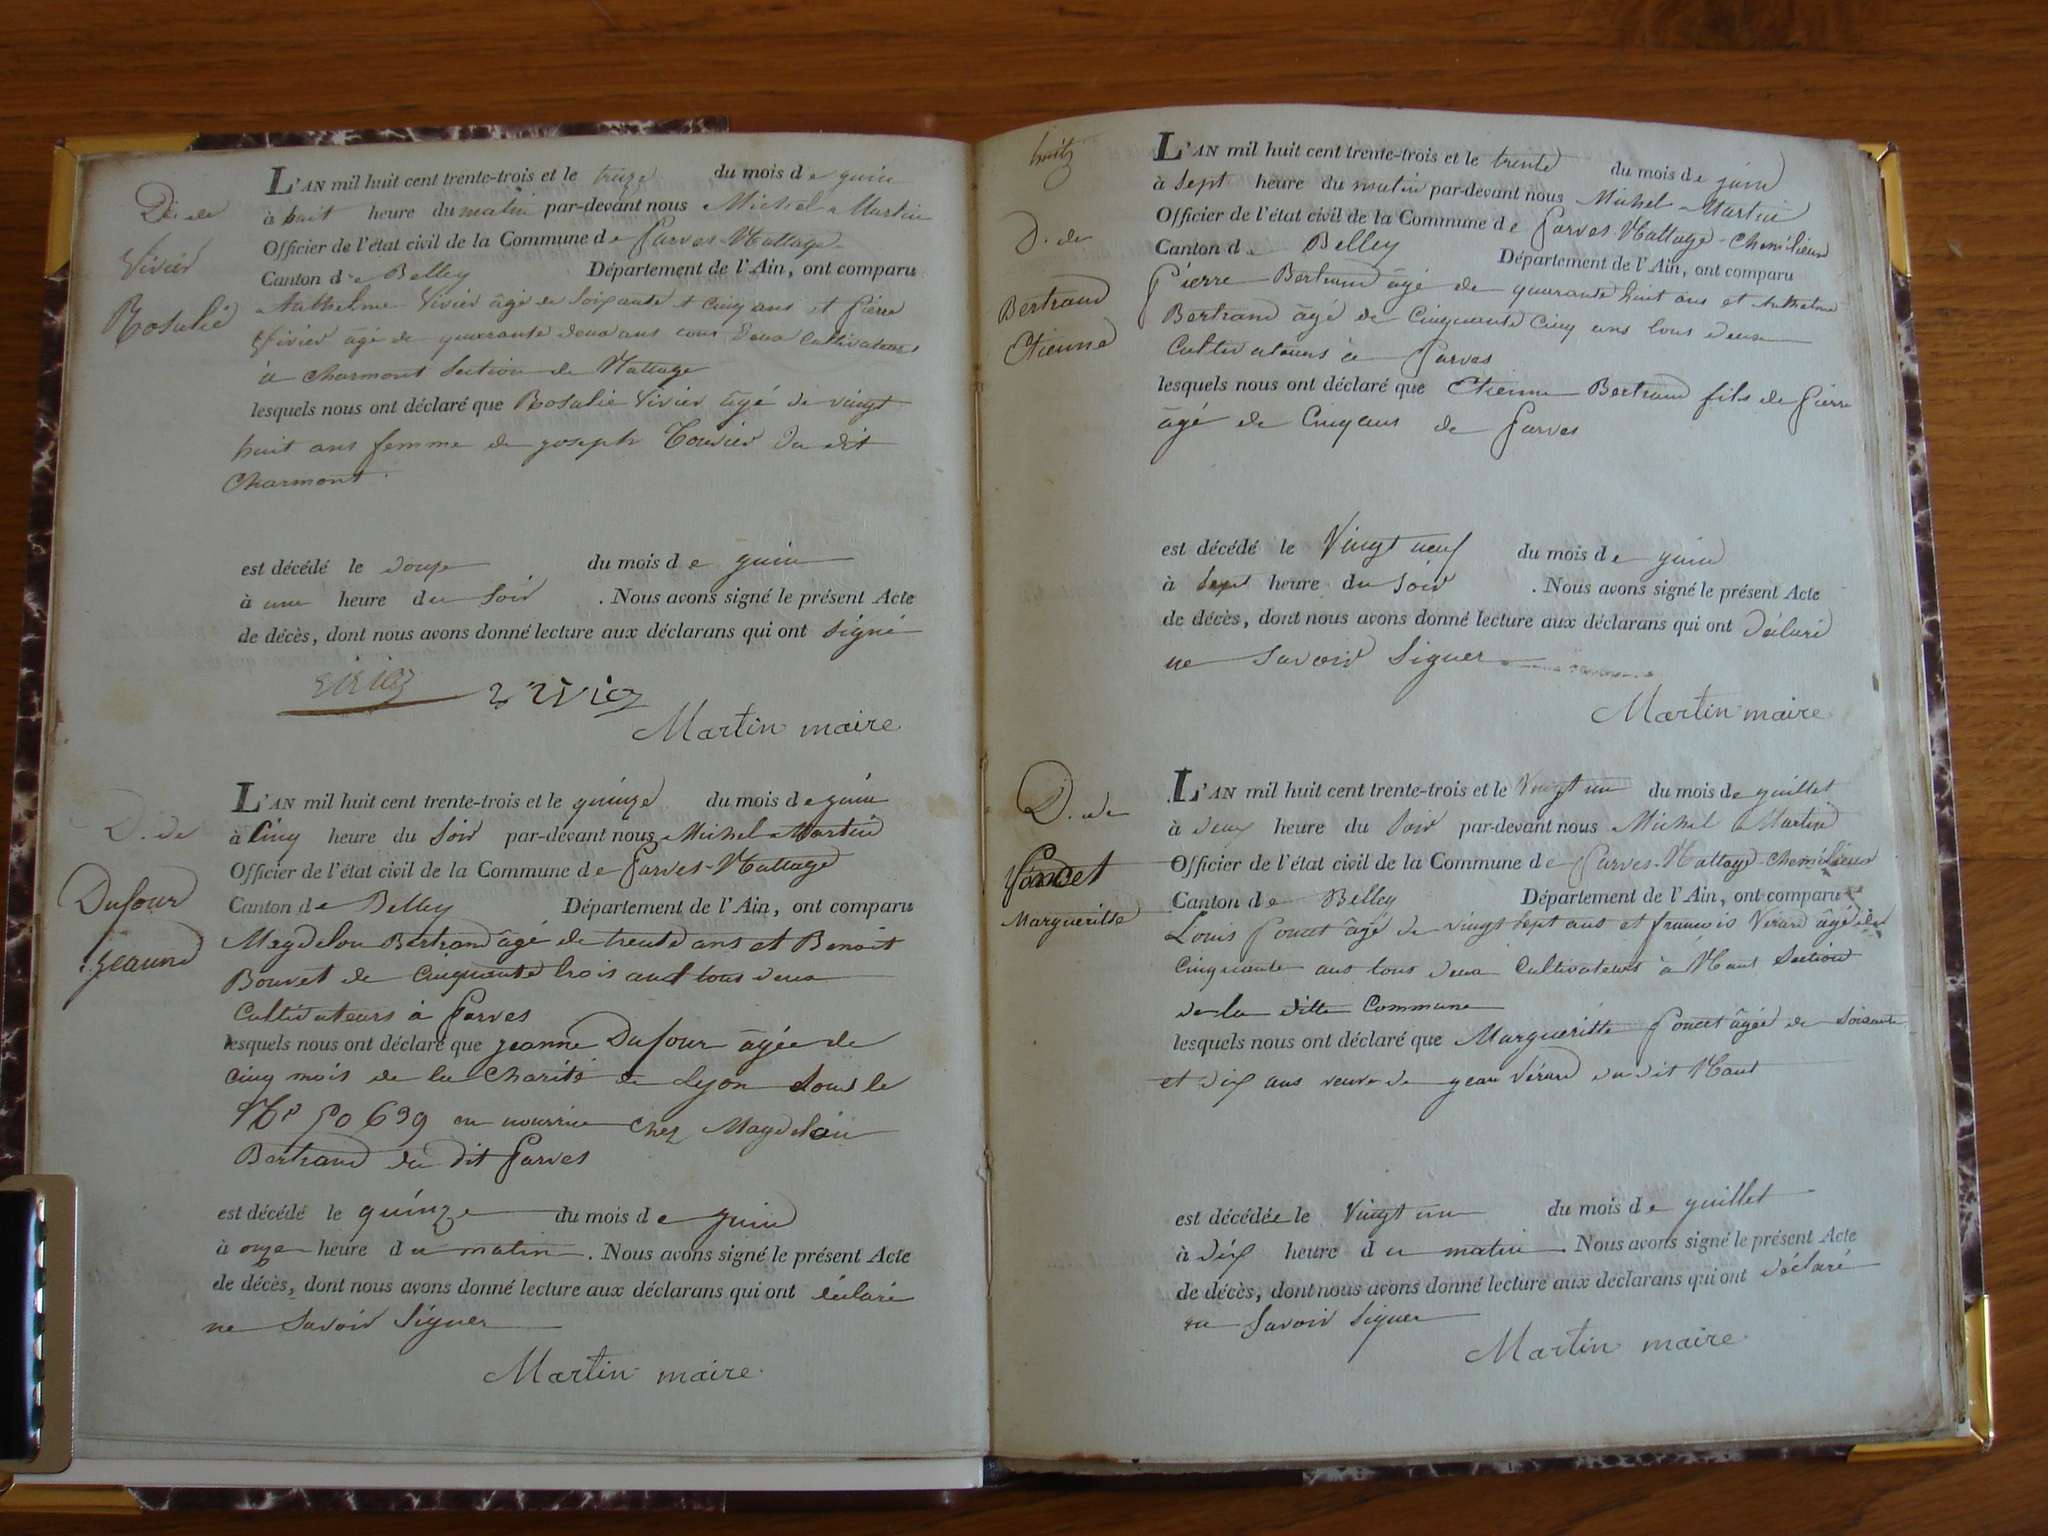 D. de
Vivier
Rosalie
L'AN mil huit cent trente-trois et le treize du mois de juin
à huit heure du matin par-devant nous Michel Martin
Officier de l'état civil de la Commune de Parves-Nattage
Canton de Belley Département de l'Ain, ont comparu
Anthelme Vivier âgé de soixante et cinq ans et Pierre
Vivier âgé de quarante deux ans tous deux cultivateurs
à Charmont Section de Nattage
lesquels nous ont déclaré que Rosalie Vivier âgé de vingt
huit ans femme de joseph du dit
Charmont.
est décédé le douze du mois de juin
à une heure du Soir . Nous avons signé le présent Acte
de décès, dont nous avons donné lecture aux déclarans qui ont signé
Martin maire
D. de
Dufour
jeanne
L'AN mil huit cent trente-trois et le quinze du mois de juin
à Cinq heure du Soir par-devant nous Michel Martin
Officier de l'état civil de la Commune de Parves-Nattage
Canton de Belley Département de l'Ain, ont comparu
Magdelon Bertrand âgé de trente ans et Benoit
Bouvet de Cinquante trois ans tous deux
Cultivateurs à Parves
lesquels nous ont déclaré que jeanne Dufour âgée de
cinq mois de la Charité de Lyon sous le
N° 50639 en nourrice chez Magdelon
Bertrand du dit Parves
est décédé le quinze du mois de juin
à onze heure du matin . Nous avons signé le présent Acte
de décès, dont nous avons donné lecture aux déclarans qui ont déclaré
ne Savoir Signer
Martin maire
huit
D. de
Bertrand
Etienne
L'AN mil huit cent trente-trois et le trente du mois de juin
à Sept heure du matin par-devant nous Michel Martin
Officier de l'état civil de la Commune de Parves-Nattage-Chemilieu
Canton de Belley Département de l'Ain, ont comparu
Pierre Bertrand âgé de quarante huit ans et Anthelme
Bertrand âgé de Cinquante Cinq ans tous deux
Cultivateurs à Parves
lesquels nous ont déclaré que Etienne Bertrand fils de Pierre
âgé de Cinq ans de Parves
est décédé le Vingt neuf du mois de juin
à Sept heure du Soir . Nous avons signé le présent Acte
de décès, dont nous avons donné lecture aux déclarans qui ont déclaré
ne Savoir Signer
Martin maire
D. de
Margueritte
L'AN mil huit cent trente-trois et le Vingt un du mois de juillet
à deux heure du Soir par-devant nous Michel Martin
Officier de l'état civil de la Commune de Parves-Nattage-Chemilieu
Canton de Belley Département de l'Ain, ont comparu
Louis Poncet âgé de vingt sept ans et françois Vérard âgé de
Cinquante ans tous deux Cultivateurs à Nant Section
de la ditte Commune
lesquels nous ont déclaré que Margueritte Poncet âgée de Soixante
et dix ans veuve de jean Vérard du dit Nant
est décédée le Vingt un du mois de juillet
à dix heure du matin . Nous avons signé le présent Acte
de décès, dont nous avons donné lecture aux déclarans qui ont déclaré
ne Savoir Signer
Martin maire